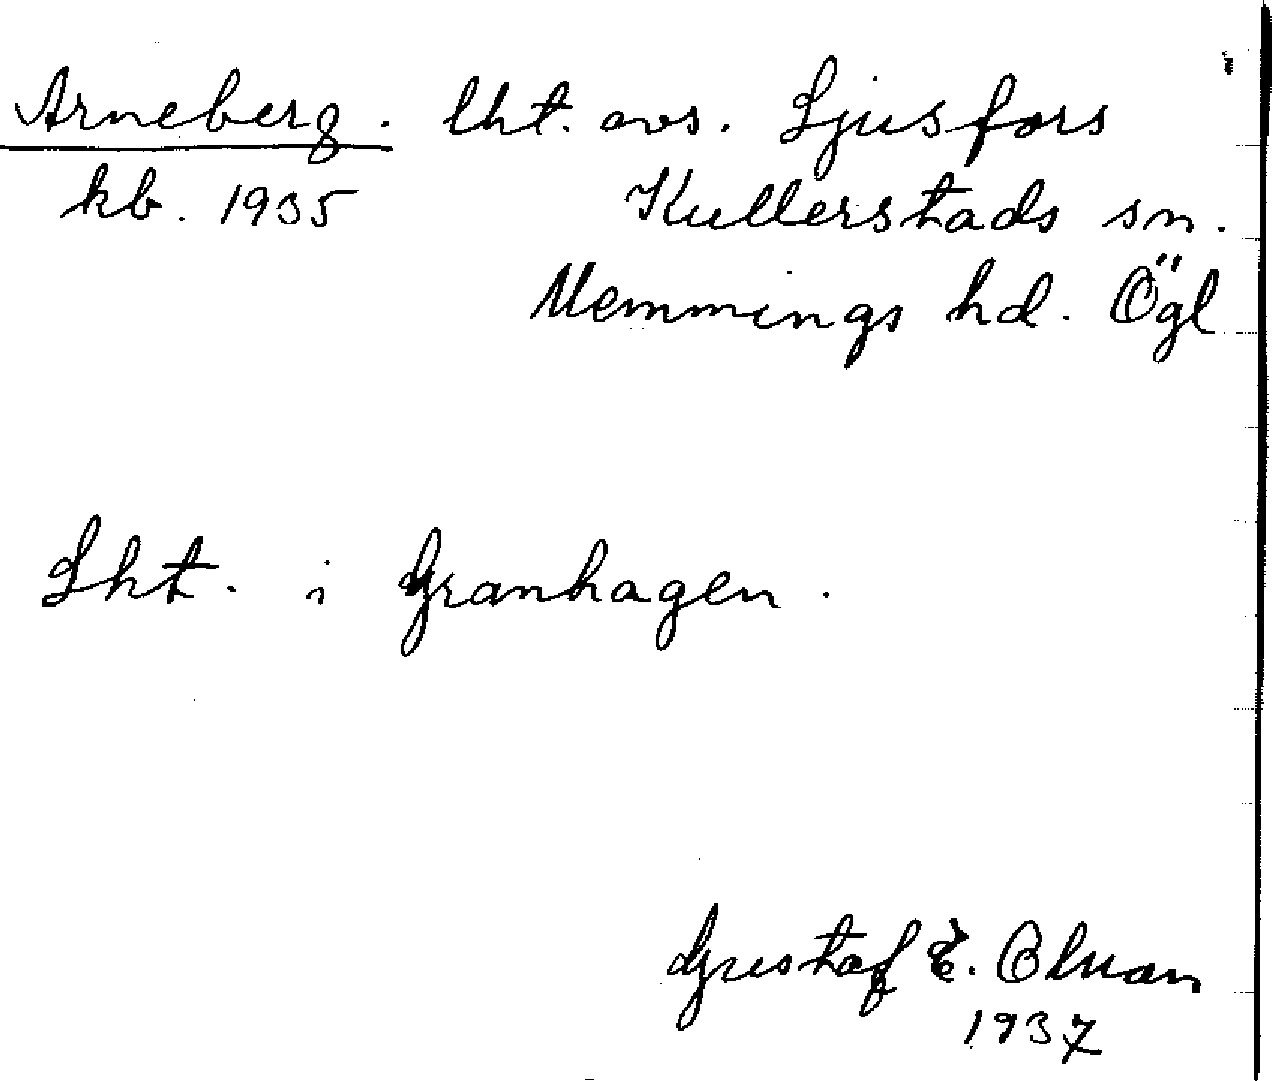 Arneberg. lht. avs. Ljusfors
kb. 1935 Kullerstads sn.
Memmings hd. Ögl
Lht. i Granhagen.
Gustaf E. Ohman
1937